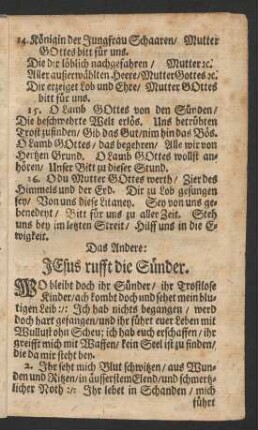 14. Königin der Jungfrau Schaaren/ Mutter
GOttes bitt für uns.
Die dir löblich nachgefahren / Mutter ꝛc.
Aller außerwählten Heere/ Mutter Gottes ꝛc.
Dir erzeiget Lob und Ehre/ Mutter GOttes
bitt für uns.
15. O Lamb GOttes von den Sünden/
Die beschwehrte Welt erlös. Uns betrübten
Trost zufinden/ Gib das Gut/ nim hin das Bös.
O Lamb GOttes/ das begehren/ Alle wir von
Hertzen Grund. O Lamb GOttes wollst an-
hören/ Unser Bitt zu dieser Stund.
16. O du Mutter GOttes werth/ Zier des
Himmels und der Erd. Dir zu Lob gesungen
sey/ Von uns diese Litaney. Sey von uns ge-
benedeyt/ Bitt für uns zu aller Zeit. Steh
uns bey im letzten Streit/ Hilf uns in die E-
wigkeit.
Das Andere:
JEsus rufft die Sünder.
WO bleibt doch ihr Sünder/ ihr Trostlose
Kinder/ ach kombt doch und sehet mein blu-
tigen Leib :/: Ich hab nichts begangen/ werd
doch hart gefangen/ und ihr führt euer Leben mit
Wollust ohn Scheu; ich hab euch erschaffen/ ihr
greifft mich mit Waffen/ kein Seel ist zu finden/
die da mir steht bey.
2. Ihr seht mich Blut schwitzen/ aus Wun-
den und Ritzen/ in äusserstem Elend/ und schmertz-
licher Noth :/: Ihr lebet in Schanden/ mich
führt